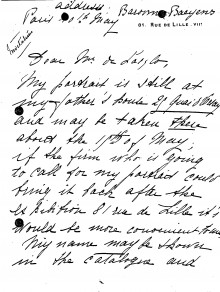 address: Baronne Baeyens
Paris May 81, RUE DE LILLE. VIIe
Dear Mr. de László,
My portrait is still at
my father's house 21 Quai
and may be taken there
about the 17th of May;
if the firm who is going
to call for my portrait could
bring it back after the
exhibition 81 rue de Lille it's
would be more convenient to me
My name may be shown
in the catalogue and